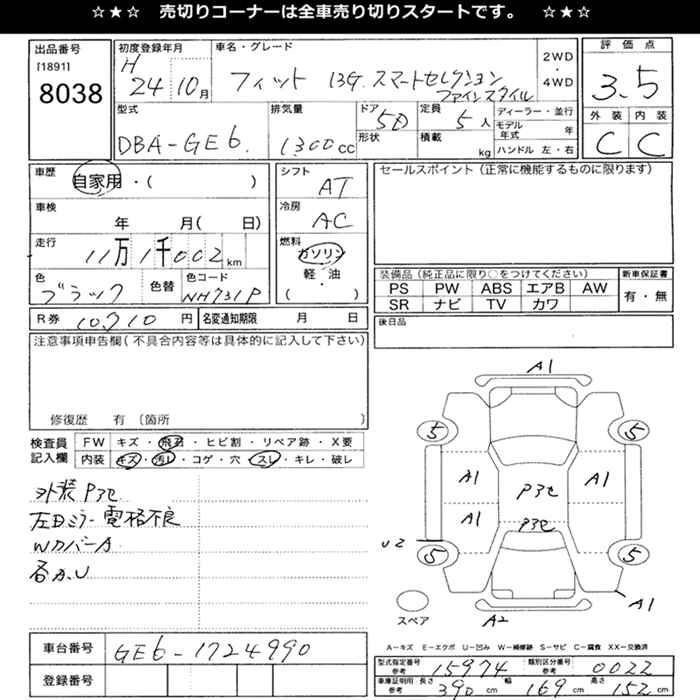 ☆★☆　売切りコーナーは全車売り切りスタートです。　☆★☆
出品番号
[1891]
8038
初度登録年月
H 24 10月
車名・グレード
フィット 13G.スマートセレクション
ファインスタイル
2WD
・
4WD
評価点
3.5
外装 内装
C C
型式
DBA-GE6.
排気量
1300cc
ドア
5D
形状
定員
5人
積載
kg
ディーラー・並行
モデル
年式 年
ハンドル 左・右
車歴
自家用・( )
車検
年 月( 日)
走行
11万1千002km
色
ブラック
色替
色コード
NH731P
シフト
AT
冷房
AC
燃料
ガソリン
軽・油
( )
セールスポイント(正常に機能するものに限ります)
装備品(純正品に限り○をつけてください)
PS PW ABS エアB AW
SR ナビ TV カワ
新車保証書
有・無
R券 10,710円
名変通知期限 月 日
後日品
注意事項申告欄(不具合内容等は具体的に記入して下さい)
修復歴 有 〔箇所 〕
検査員
記入欄
FW キズ・飛石・ヒビ割・リペア跡・X要
内装 キズ・汚レ・コゲ・穴・スレ・キレ・破レ
外装 P3セ
左Dミラー電格不良
Wカバー A
各カ.U
A1
5 5
A1 P3セ A1
A1 P3セ
U2
5 5
A1
A2
スペア
A-キズ E-エクボ U-凹み W-補修跡 S-サビ C-腐食 XX-交換済
車台番号
GE6-1724990
登録番号
型式指定番号
参考 15974
類別区分番号
参考 0022
車庫証明用 長さ
参考 390 cm
幅
169 cm
高さ
152 cm